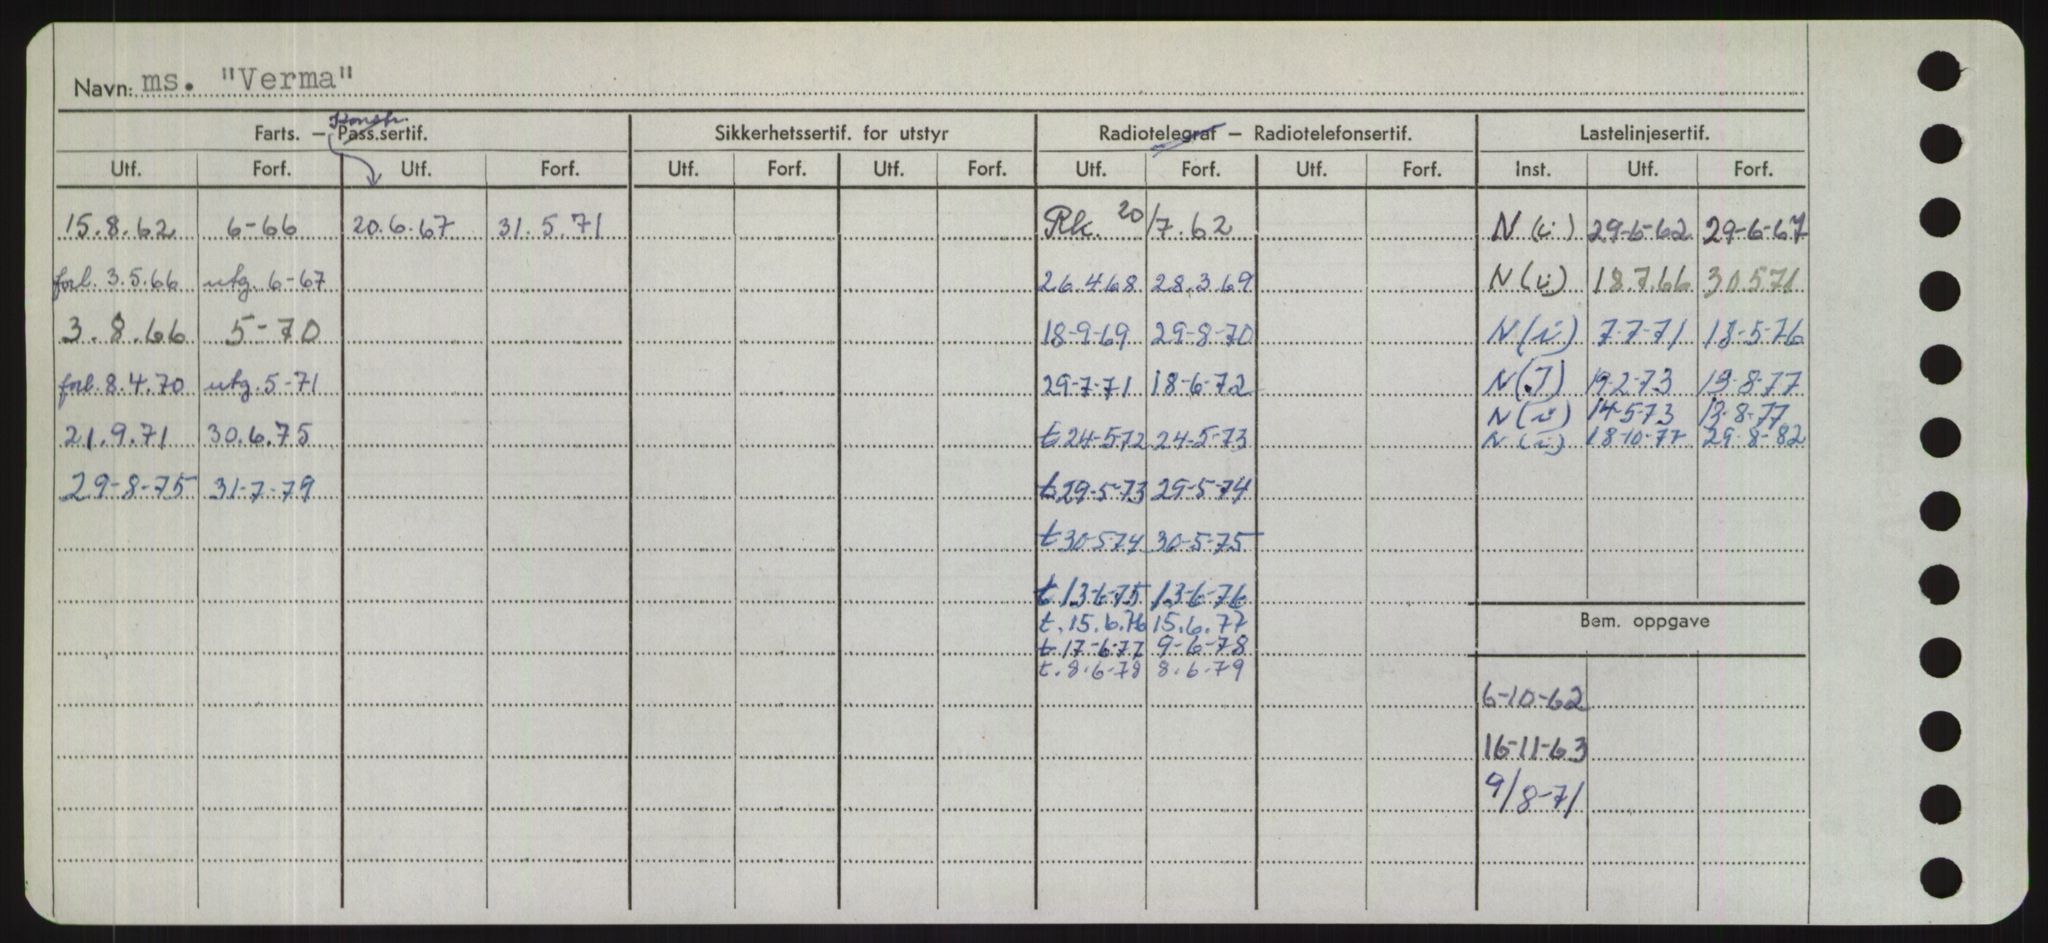 Navn: ms. "Verma"
Konstr.
Farts. – Pass.sertif. Sikkerhetssertif. for utstyr Radiotelegraf – Radiotelefonsertif. Lastelinjesertif.
Utf. Forf. Utf. Forf. Utf. Forf. Utf. Forf. Utf. Forf. Utf. Forf. Inst. Utf. Forf.
15.8.62 6-66 20.6.67 31.5.71 Rk. 20/7.62 N (i) 29-6-62 29-6-67
forl. 3.5.66 utg. 6-67 26.4.68 28.3.69 N (i) 18.7.66 30.5.71
3.8.66 5-70 18-9-69 29-8-70 N (i) 7-7-71 18-5-76
forl. 8.4.70 utg. 5-71 29-7-71 18-6-72 N (I) 19-2-73 13-8-77
N (i) 14-5-73 13-8-77
21.9.71 30.6.75 t 24-5-72 24-5-73 N (i) 18-10-77 29-8-82
29-8-75 31-7-79 t 29-5-73 29-5-74
t 30-5-74 30-5-75
t 13-6-75 13-6-76
t. 15.6.76 15.6.77
t 17-6-77 9-6-78
t. 8.6-78 8.6-79
Bem. oppgave
6-10-62
16-11-63
9/8-71